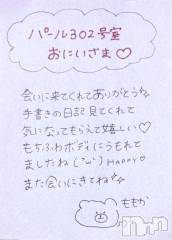 パール302号室
おにいさま♡
会いに来てくれてありがとうね
手書きの日記見てくれて
気になってもらえて嬉しい♡
もちふわボディにうもれて
ましたね(¨ω¨) HAPPY♡
また会いにきてね
ももか